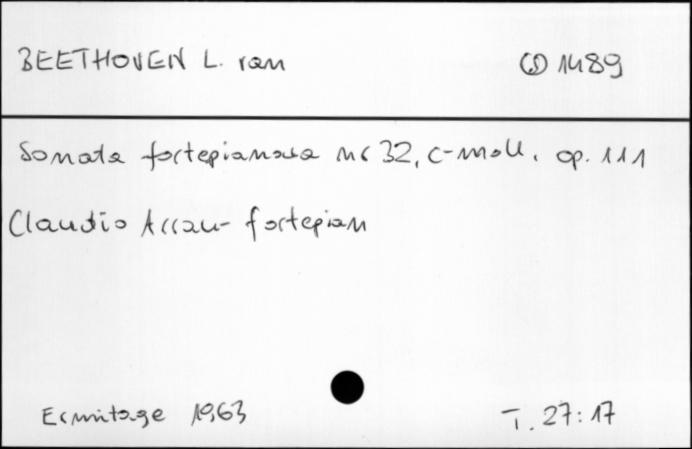 BEETHOVEN L. van CD 1489
Sonata fortepianowa nr 32, c-moll, op. 111
Claudio Arrau - fortepian
Ermitage 1963 T. 27:17